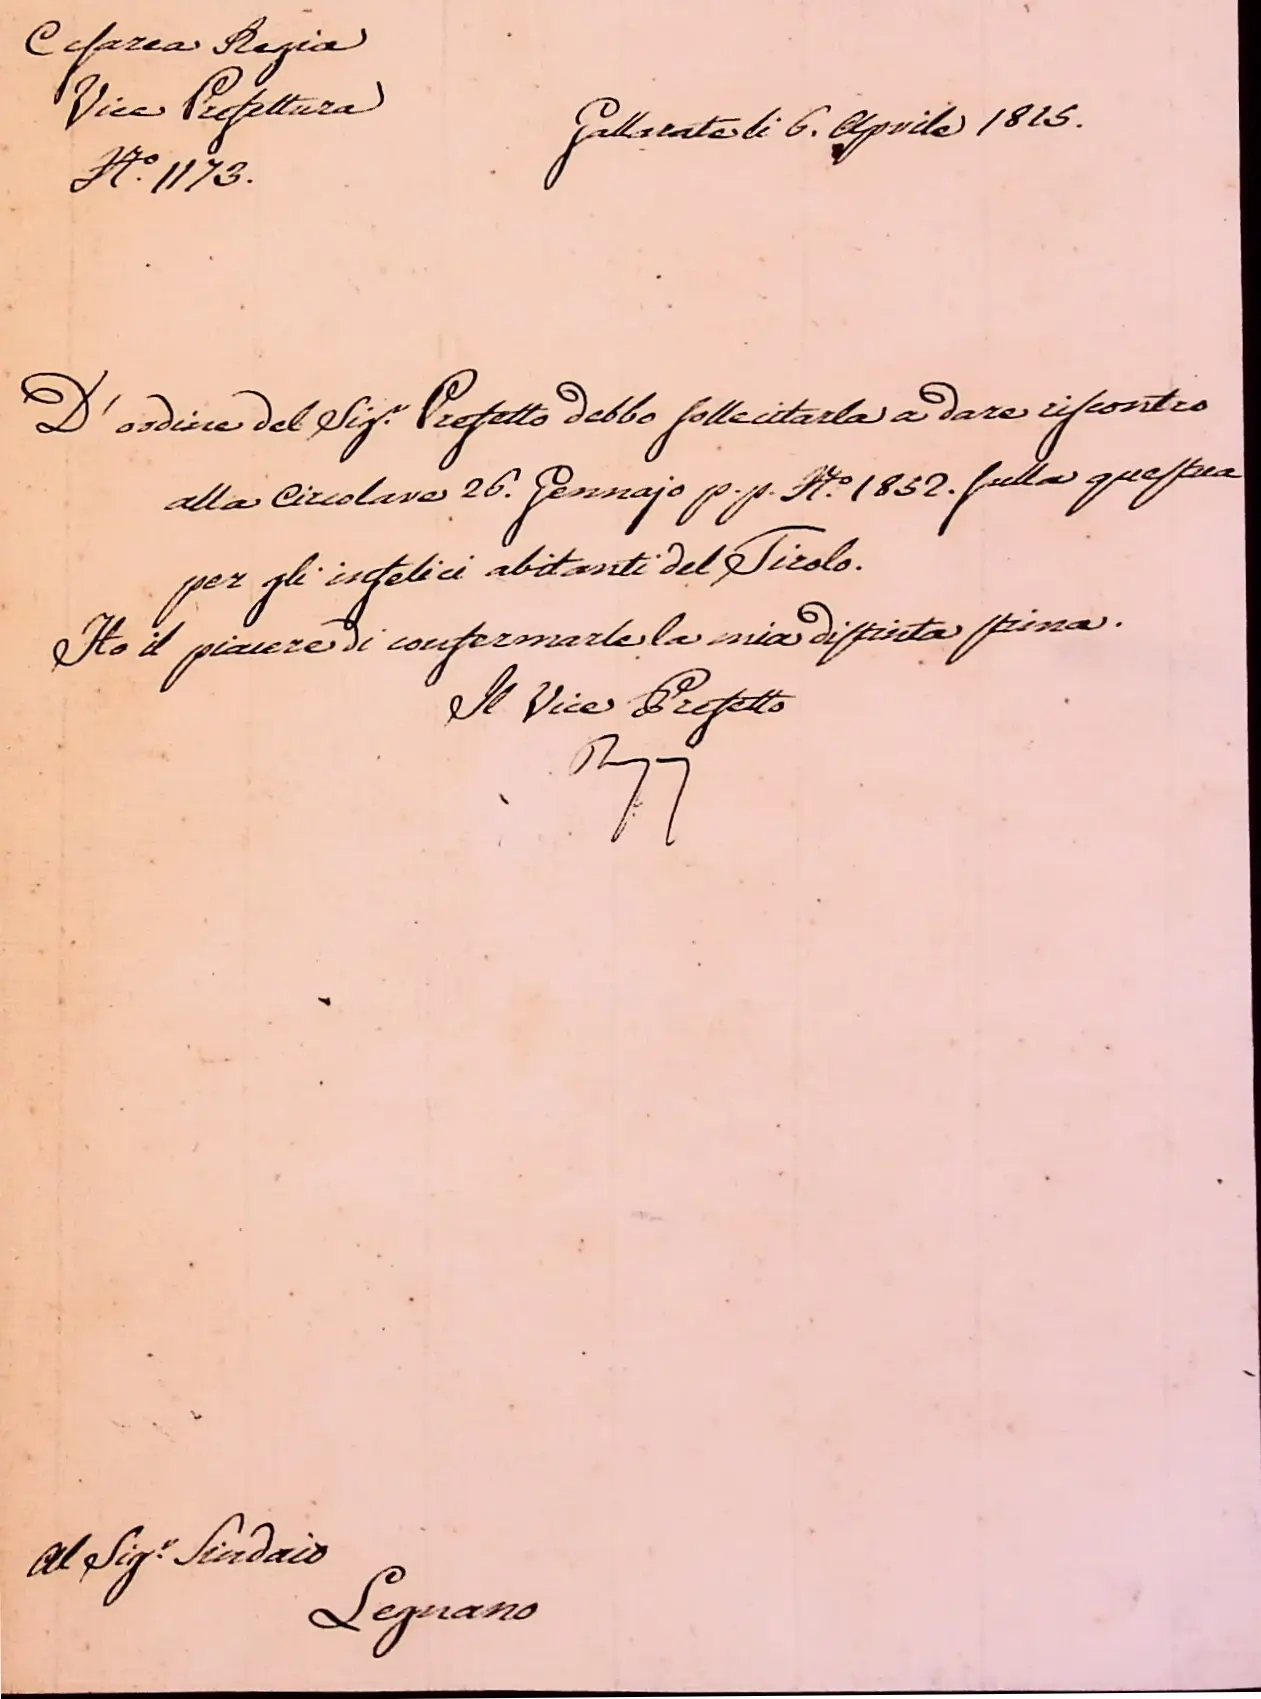 Cesarea Regia
Vice Prefettura
N.° 1173.
Gallarate li 6. Aprile 1815.
D'ordine del Sig.r Prefetto debbo sollecitarla a dare riscontro
alla Circolare 26. Gennajo p.p. N.° 1852. sulla questua
per gli infelici abitanti del Tirolo.
Ho il piacere di confermarle la mia distinta stima.
Il Vice Prefetto
Al Sig.r Sindaco
Legnano